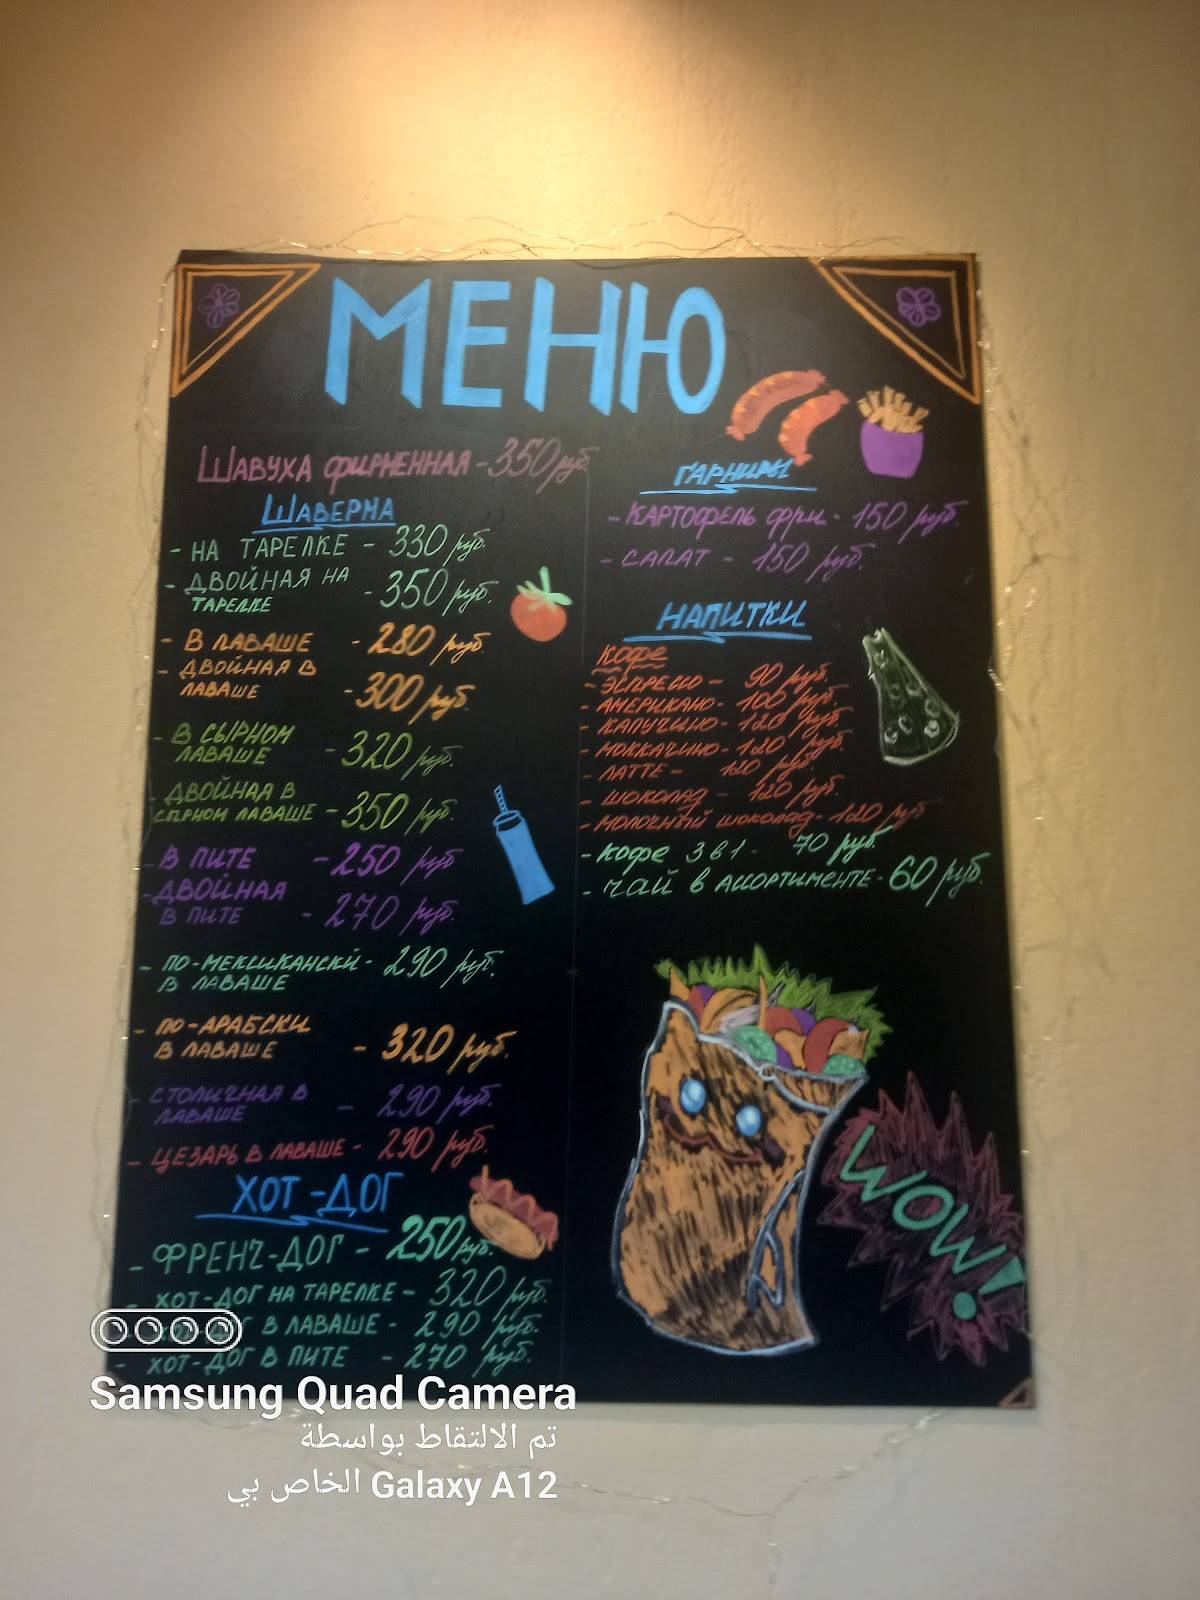 МЕНЮ
ШАВУХА ФИРМЕННАЯ - 350 руб.
ШАВЕРМА
- НА ТАРЕЛКЕ - 330 руб.
- ДВОЙНАЯ НА
ТАРЕЛКЕ - 350 руб.
- В ЛАВАШЕ - 280 руб.
- ДВОЙНАЯ В
ЛАВАШЕ - 300 руб.
- В СЫРНОМ
ЛАВАШЕ - 320 руб.
- ДВОЙНАЯ В
СЫРНОМ ЛАВАШЕ - 350 руб.
- В ПИТЕ - 250 руб.
- ДВОЙНАЯ
В ПИТЕ - 270 руб.
- ПО-МЕКСИКАНСКИ - 290 руб.
В ЛАВАШЕ
- ПО-АРАБСКИ
В ЛАВАШЕ - 320 руб.
- СТОЛИЧНАЯ В
ЛАВАШЕ - 290 руб.
- ЦЕЗАРЬ В ЛАВАШЕ - 290 руб.
ХОТ-ДОГ
- ФРЕНЧ-ДОГ - 250 руб.
- ХОТ-ДОГ НА ТАРЕЛКЕ - 320 руб.
- ХОТ-ДОГ В ЛАВАШЕ - 290 руб.
- ХОТ-ДОГ В ПИТЕ - 270 руб.
ГАРНИРЫ
- КАРТОФЕЛЬ ФРИ - 150 руб.
- САЛАТ - 150 руб.
НАПИТКИ
КОФЕ
- ЭСПРЕССО - 90 руб.
- АМЕРИКАНО - 100 руб.
- КАПУЧИНО - 120 руб.
- МОККАЧИНО - 120 руб.
- ЛАТТЕ - 120 руб.
- ШОКОЛАД - 120 руб.
- МОЛОЧНЫЙ ШОКОЛАД - 120 руб.
- КОФЕ 3 в 1 - 70 руб.
- ЧАЙ В АССОРТИМЕНТЕ - 60 руб.
WOW!
Samsung Quad Camera
تم الالتقاط بواسطة
Galaxy A12 الخاص بي